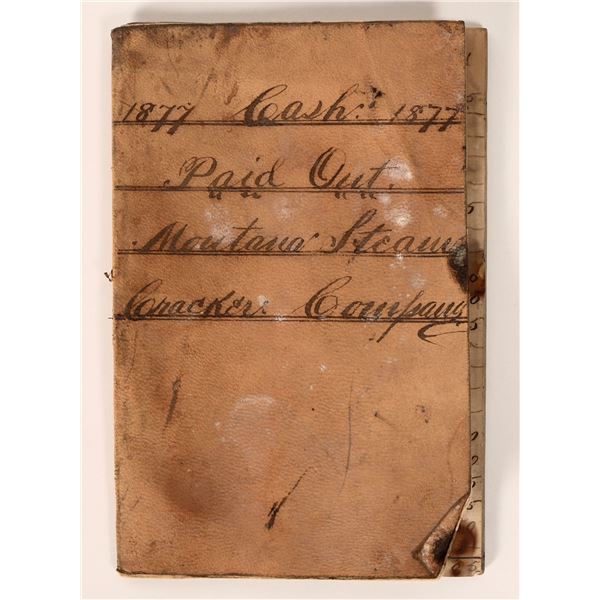 1877 Cash. 1877
Paid Out.
Montana Steam
Cracker Company